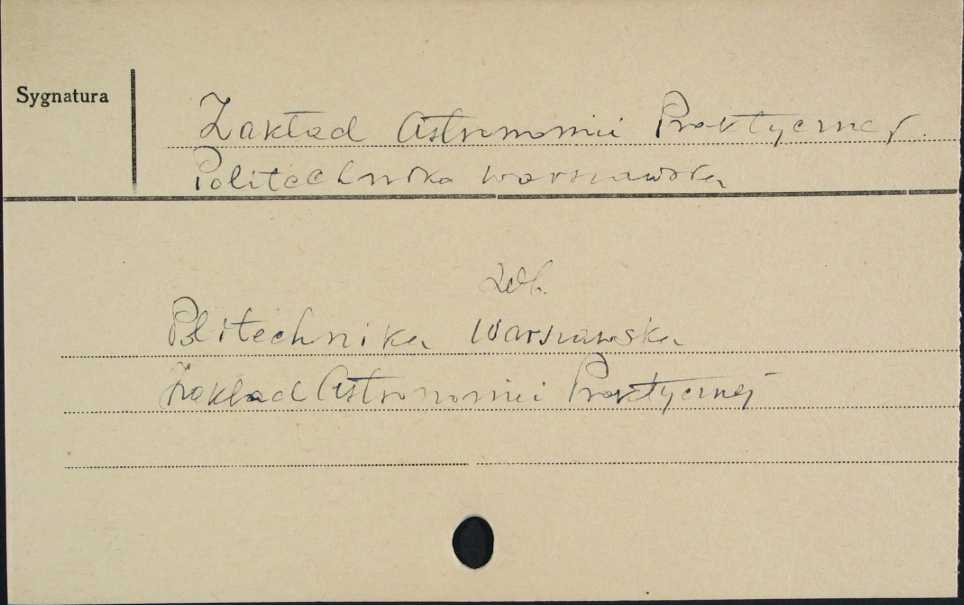 Sygnatura
Zakład Astronomii Praktycznej.
Politechnika Warszawska
zob.
Politechnika Warszawska
Zakład Astronomii Praktycznej